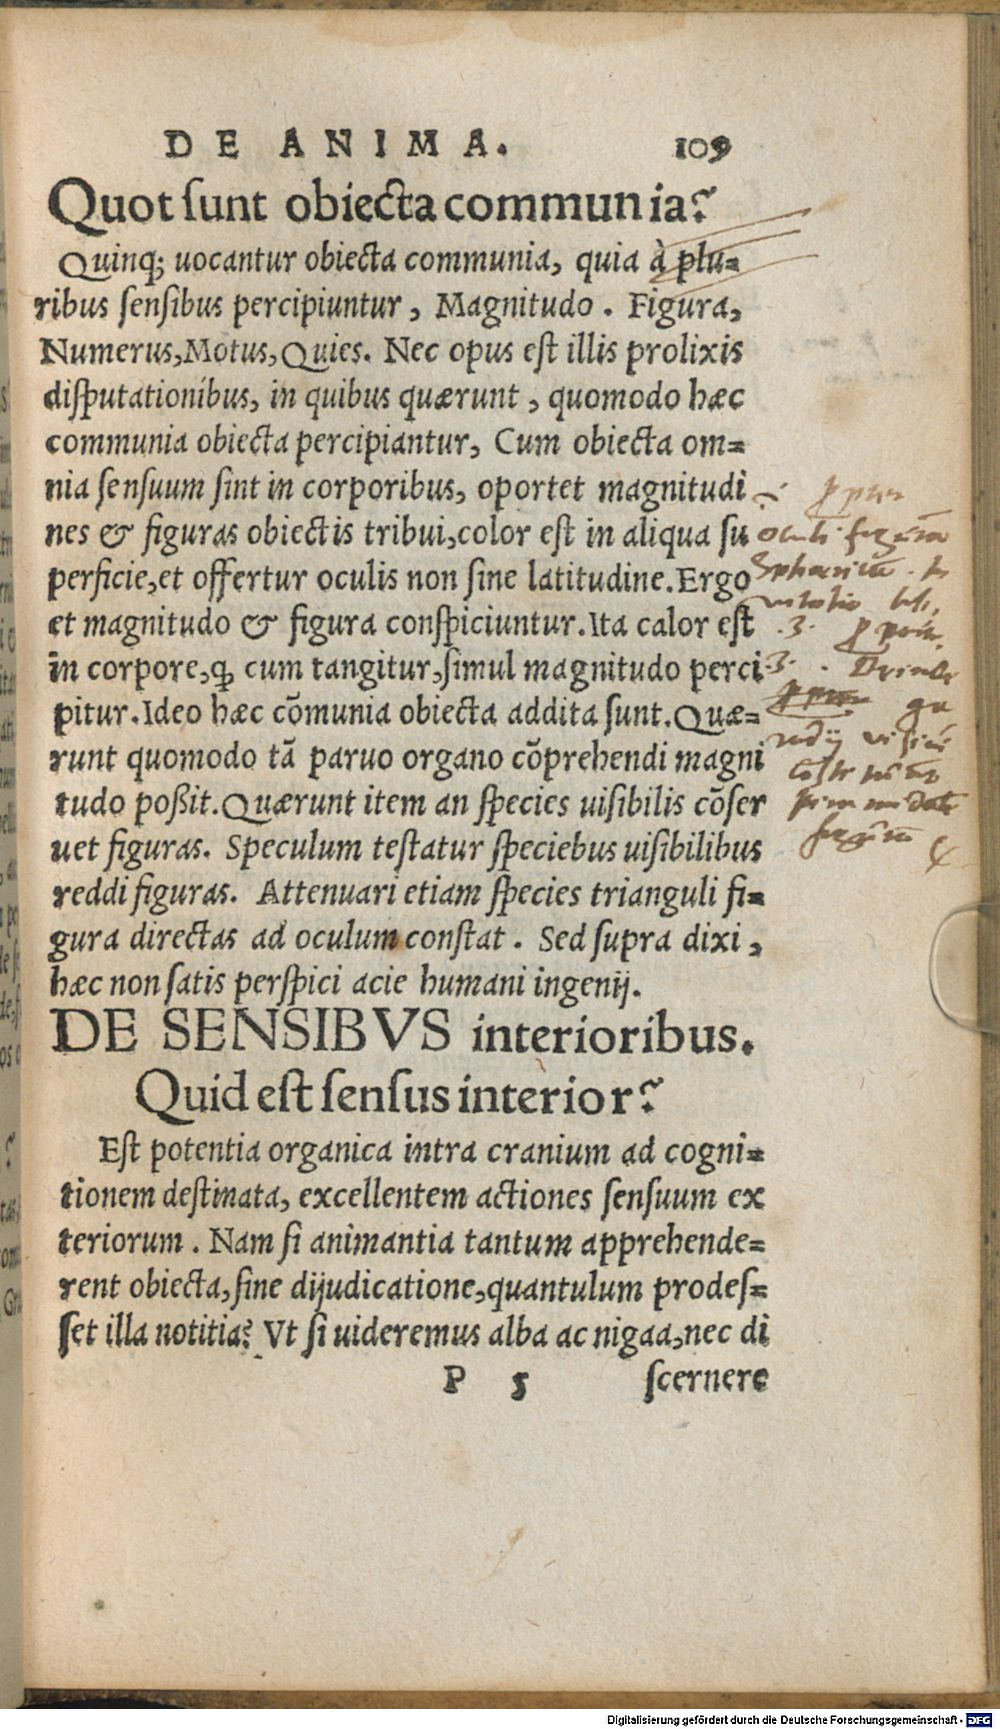 DE ANIMA. 109
Quot sunt obiecta communia?
Quinq; uocantur obiecta communia, quia à plu=
ribus sensibus percipiuntur, Magnitudo. Figura,
Numerus, Motus, Quies. Nec opus est illis prolixis
disputationibus, in quibus quærunt, quomodo hæc
communia obiecta percipiantur, Cum obiecta om=
nia sensuum sint in corporibus, oportet magnitudi
nes & figuras obiectis tribui, color est in aliqua su
perficie, et offertur oculis non sine latitudine. Ergo
et magnitudo & figura conspiciuntur. Ita calor est
in corpore, q̃ cum tangitur, simul magnitudo perci
pitur. Ideo hæc cõmunia obiecta addita sunt. Quæ=
runt quomodo tã paruo organo cõprehendi magni
tudo poßit. Quærunt item an species uisibilis cõser
uet figuras. Speculum testatur speciebus uisibilibus
reddi figuras. Attenuari etiam species trianguli fi=
gura directas ad oculum constat. Sed supra dixi,
hæc non satis perspici acie humani ingenij.
DE SENSIBVS interioribus.
Quid est sensus interior?
Est potentia organica intra cranium ad cogni=
tionem destinata, excellentem actiones sensuum ex
teriorum. Nam si animantia tantum apprehende=
rent obiecta, sine dijudicatione, quantulum prodes=
set illa notitia? Vt si uideremus alba ac nigaa, nec di
P 5 scernere
Digitalisierung gefördert durch die Deutsche Forschungsgemeinschaft - DFG